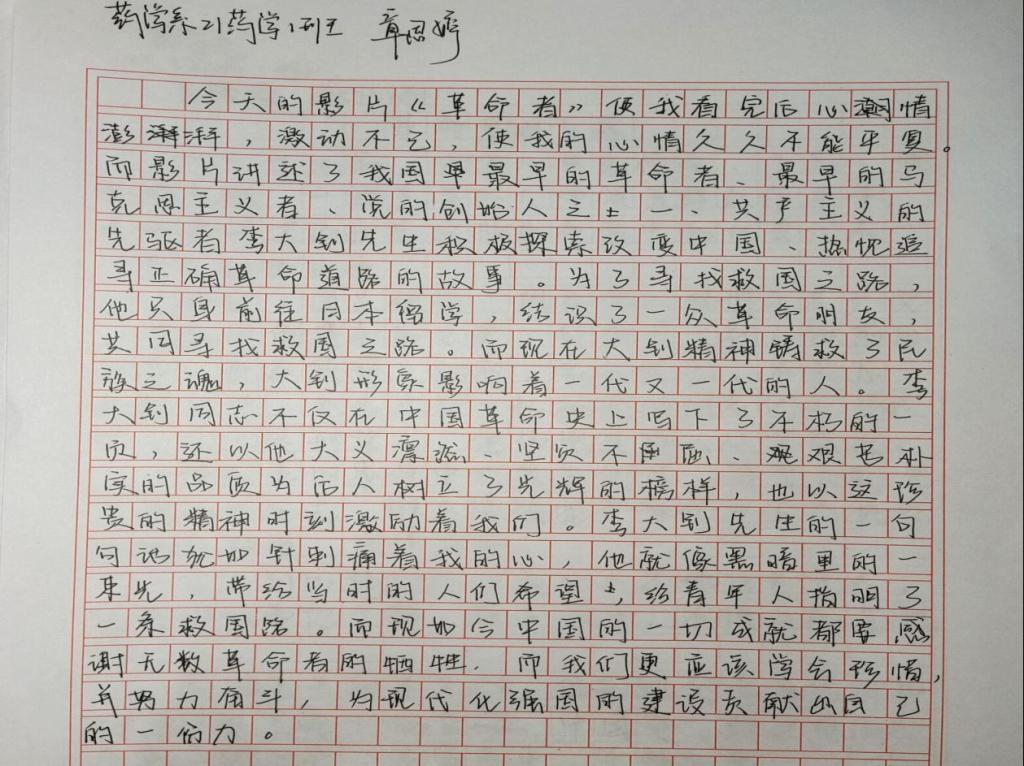 药学系21药学1班 章思婷
今天的影片《革命者》使我看完后心潮情
澎湃,激动不已,使我的心情久久不能平复。
而影片讲述了我国早最早的革命者、最早的马
克思主义者、党的创始人之一、共产主义的
先驱者李大钊先生积极探索改变中国、热忱追
寻正确革命道路的故事。为了寻找救国之路,
他只身前往日本留学,结识了一众革命朋友,
共同寻找救国之路。而现在大钊精神铸救了民
族之魂,大钊形象影响着一代又一代的人。李
大钊同志不仅在中国革命史上写下了不朽的一
页,还以他大义凛然、坚贞不屈、艰苦朴
实的品质为后人树立了光辉的榜样,也以这珍
贵的精神时刻激励着我们。李大钊先生的一句
句话犹如针刺痛着我的心,他就像黑暗里的一
束光,带给当时的人们希望,给青年人指明了
一条救国路。而现如今中国的一切成就都要感
谢无数革命者的牺牲.而我们更应该学会珍惜,
并努力奋斗,为现代化强国的建设贡献出自己
的一份力。